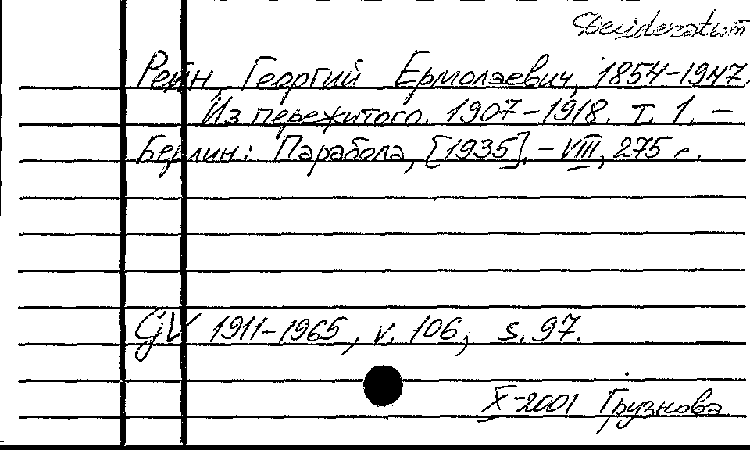 Desideratum
Рейн, Георгий Ермолаевич, 1854-1947.
Из пережитого. 1907-1918. Т. 1. –
Берлин: Парабола, [1935]. – VIII, 275 с.
GV 1911-1965, v. 106, s. 97.
X-2001 Грузнова